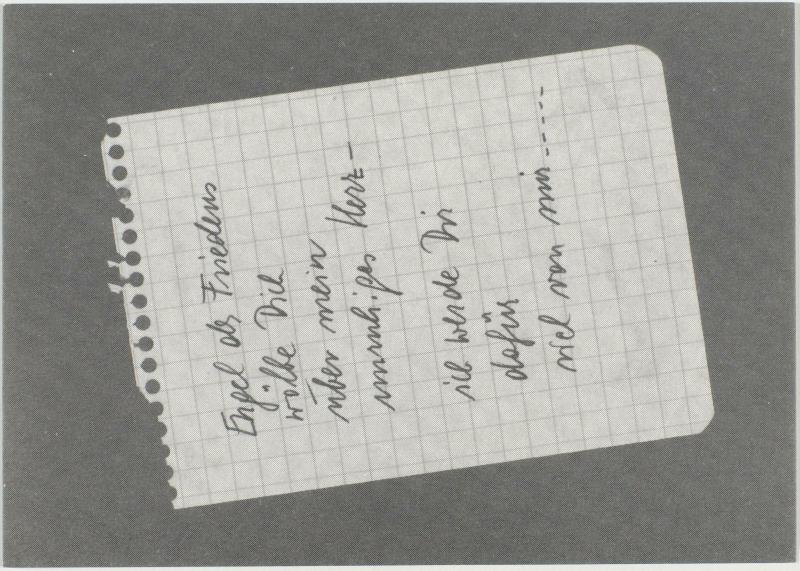 Engel des Friedens
wölbe Dich
über mein
unruhiges Herz –
ich werde Dir
dafür
viel von mir ------